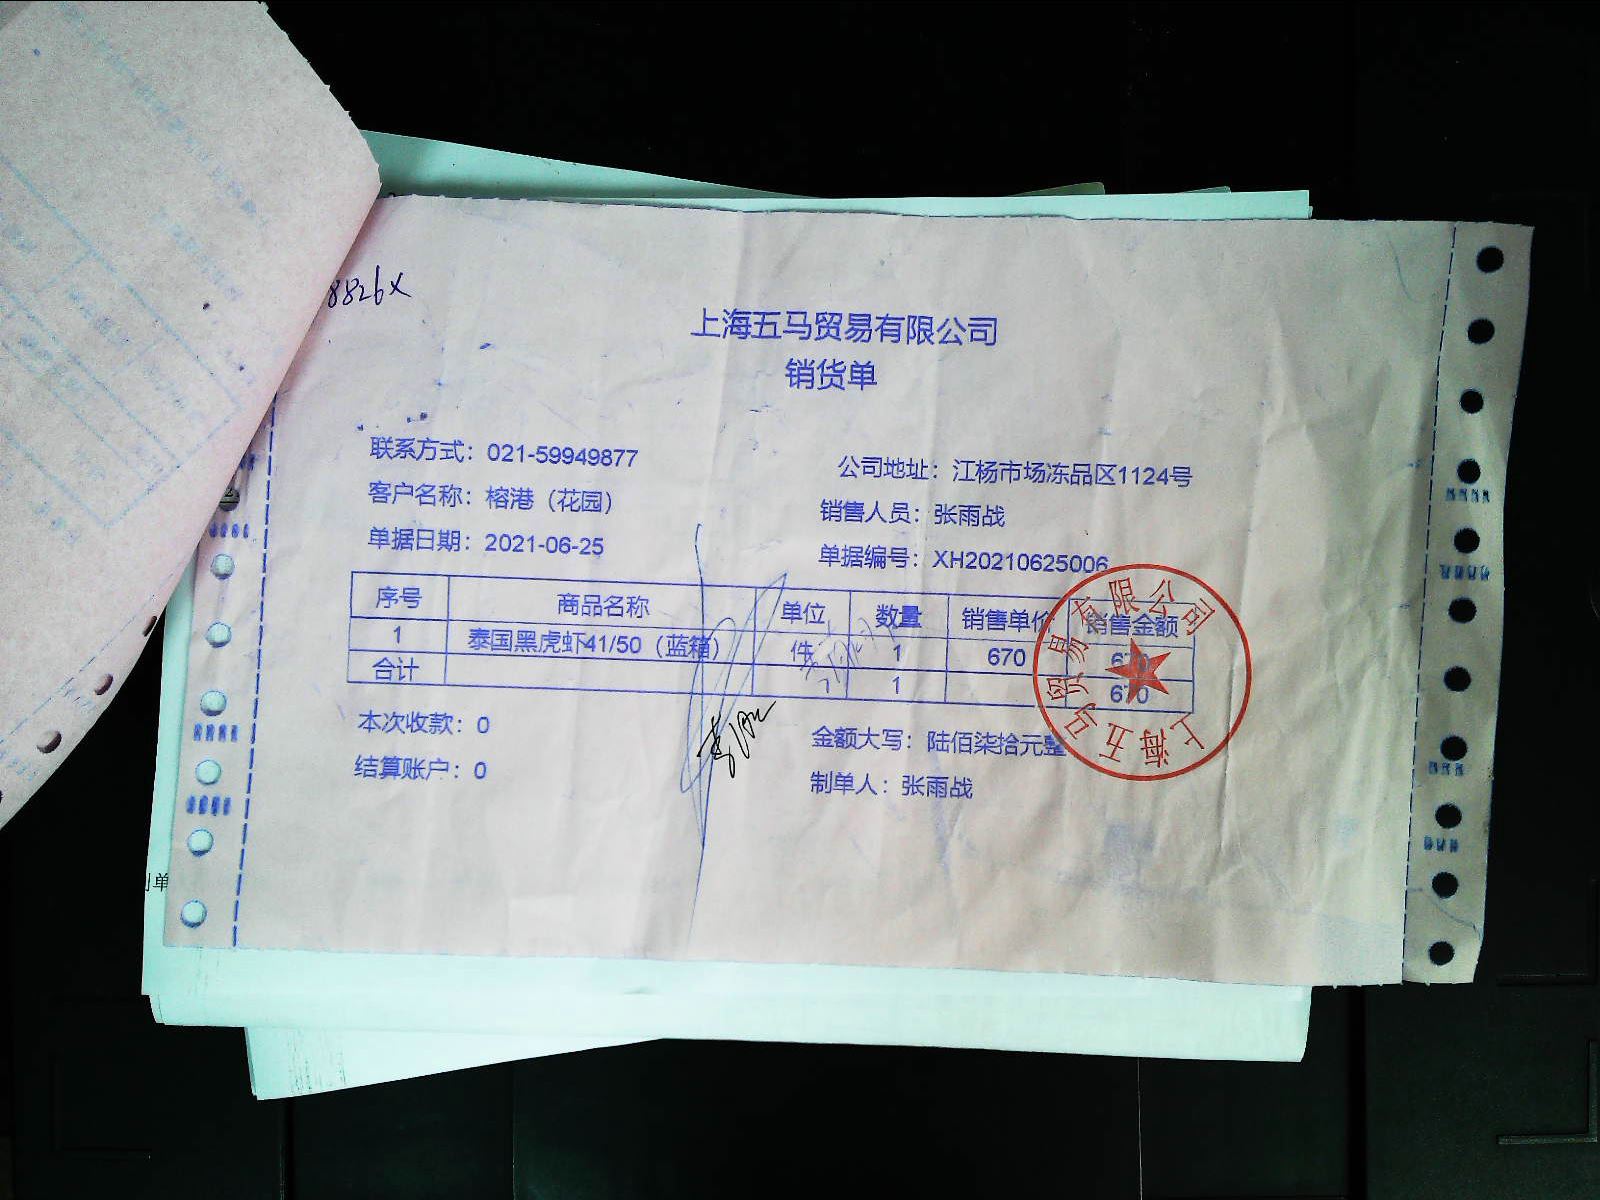 8826x
上海五马贸易有限公司
销货单
联系方式：021-59949877 公司地址：江杨市场冻品区1124号
客户名称：榕港（花园） 销售人员：张雨战
单据日期：2021-06-25 单据编号：XH20210625006
序号 商品名称 单位 数量 销售单价 销售金额
1 泰国黑虎虾41/50（蓝箱） 件 1 670 670
合计 1 670
本次收款：0 金额大写：陆佰柒拾元整
结算账户：0 制单人：张雨战
上海五马贸易有限公司
制单